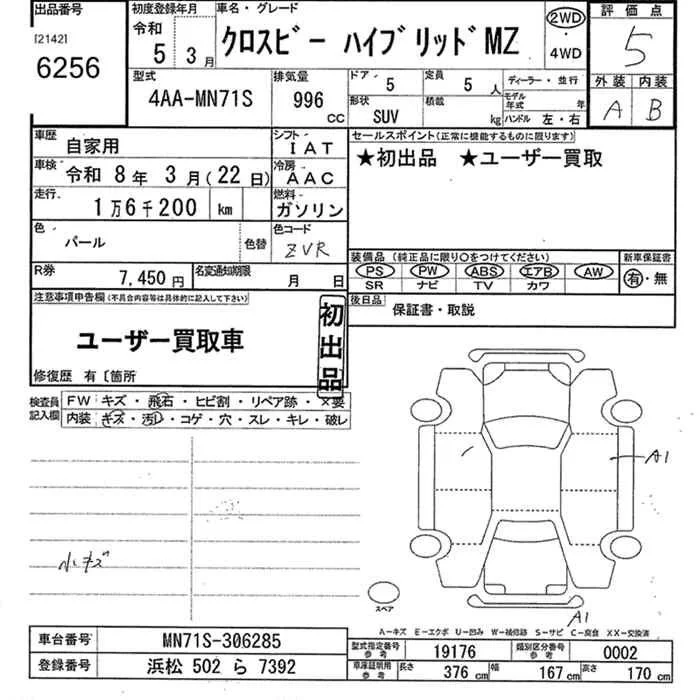 出品番号
[2142]
6256
初度登録年月
令和
5年 3月
車名・グレード
クロスビー ハイブリッドMZ
2WD
・
4WD
評価点
5
外装 内装
A B
型式
4AA-MN71S
排気量
996
CC
ドア
5
定員
5 人
形状
SUV
積載
kg
ディーラー・並行
モデル年式 年
ハンドル 左・右
車歴
自家用
シフト
IAT
車検
令和 8年 3月(22日)
冷房
AAC
走行
1万6千200 km
燃料
ガソリン
色
パール
色替
色コード
ZVR
R券
7,450円
名変通知期限
月 日
セールスポイント(正常に機能するものに限ります)
★初出品 ★ユーザー買取
装備品 (純正品に限り○をつけてください)
PS PW ABS エアB AW
SR ナビ TV カワ
新車保証書
有・無
後日品
保証書・取説
注意事項申告欄(不具合内容等は具体的に記入して下さい)
ユーザー買取車
初出品
修復歴 有〔箇所
検査員記入欄
FW キズ・飛石・ヒビ割・リペア跡・×要
内装 キズ・汚レ・コゲ・穴・スレ・キレ・破レ
A1
小キズ
スペア
A1
A-キズ E-エクボ U-凹み W-補修跡 S-サビ C-腐食 XX-交換済
車台番号
MN71S-306285
登録番号
浜松 502 ら 7392
型式指定番号 参考
19176
類別区分番号 参考
0002
車庫証明用 参考
長さ 376 cm
幅 167 cm
高さ 170 cm